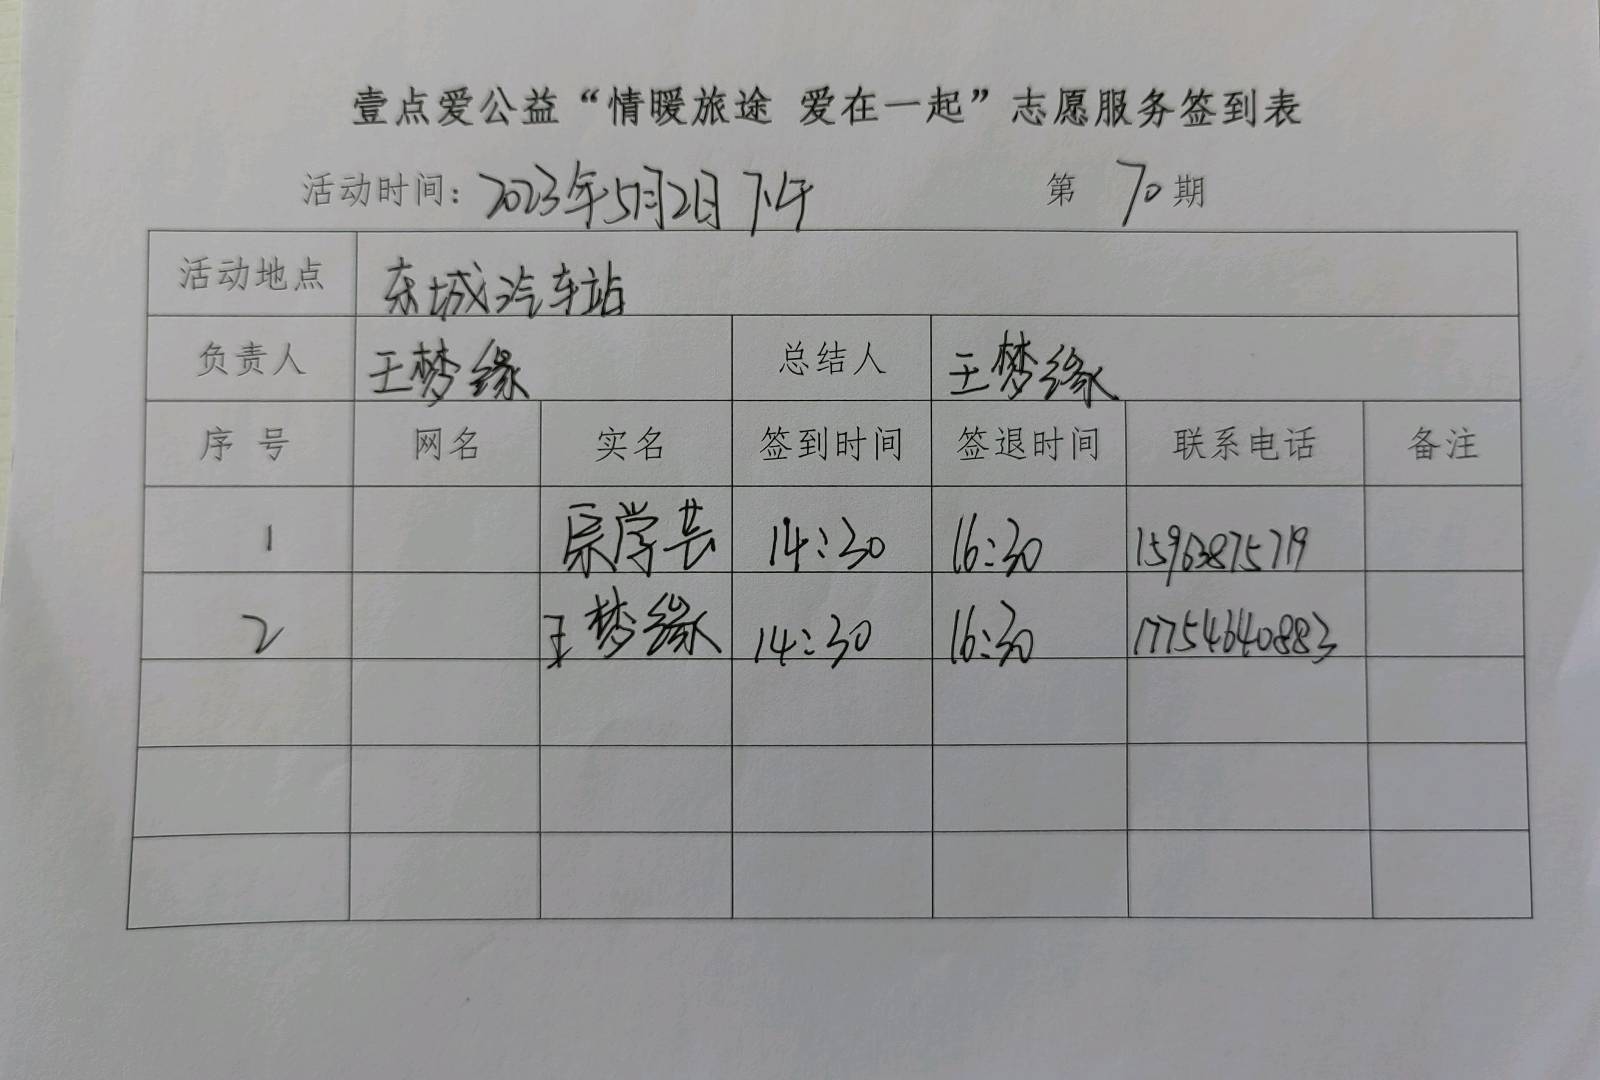 壹点爱公益“情暖旅途 爱在一起”志愿服务签到表
活动时间：2023年5月2日下午 第 70 期
活动地点 东城汽车站
负责人 王梦缘 总结人 王梦缘
序 号 网名 实名 签到时间 签退时间 联系电话 备注
1 宗学芸 14:30 16:30 15963875719
2 王梦缘 14:30 16:30 17754640883